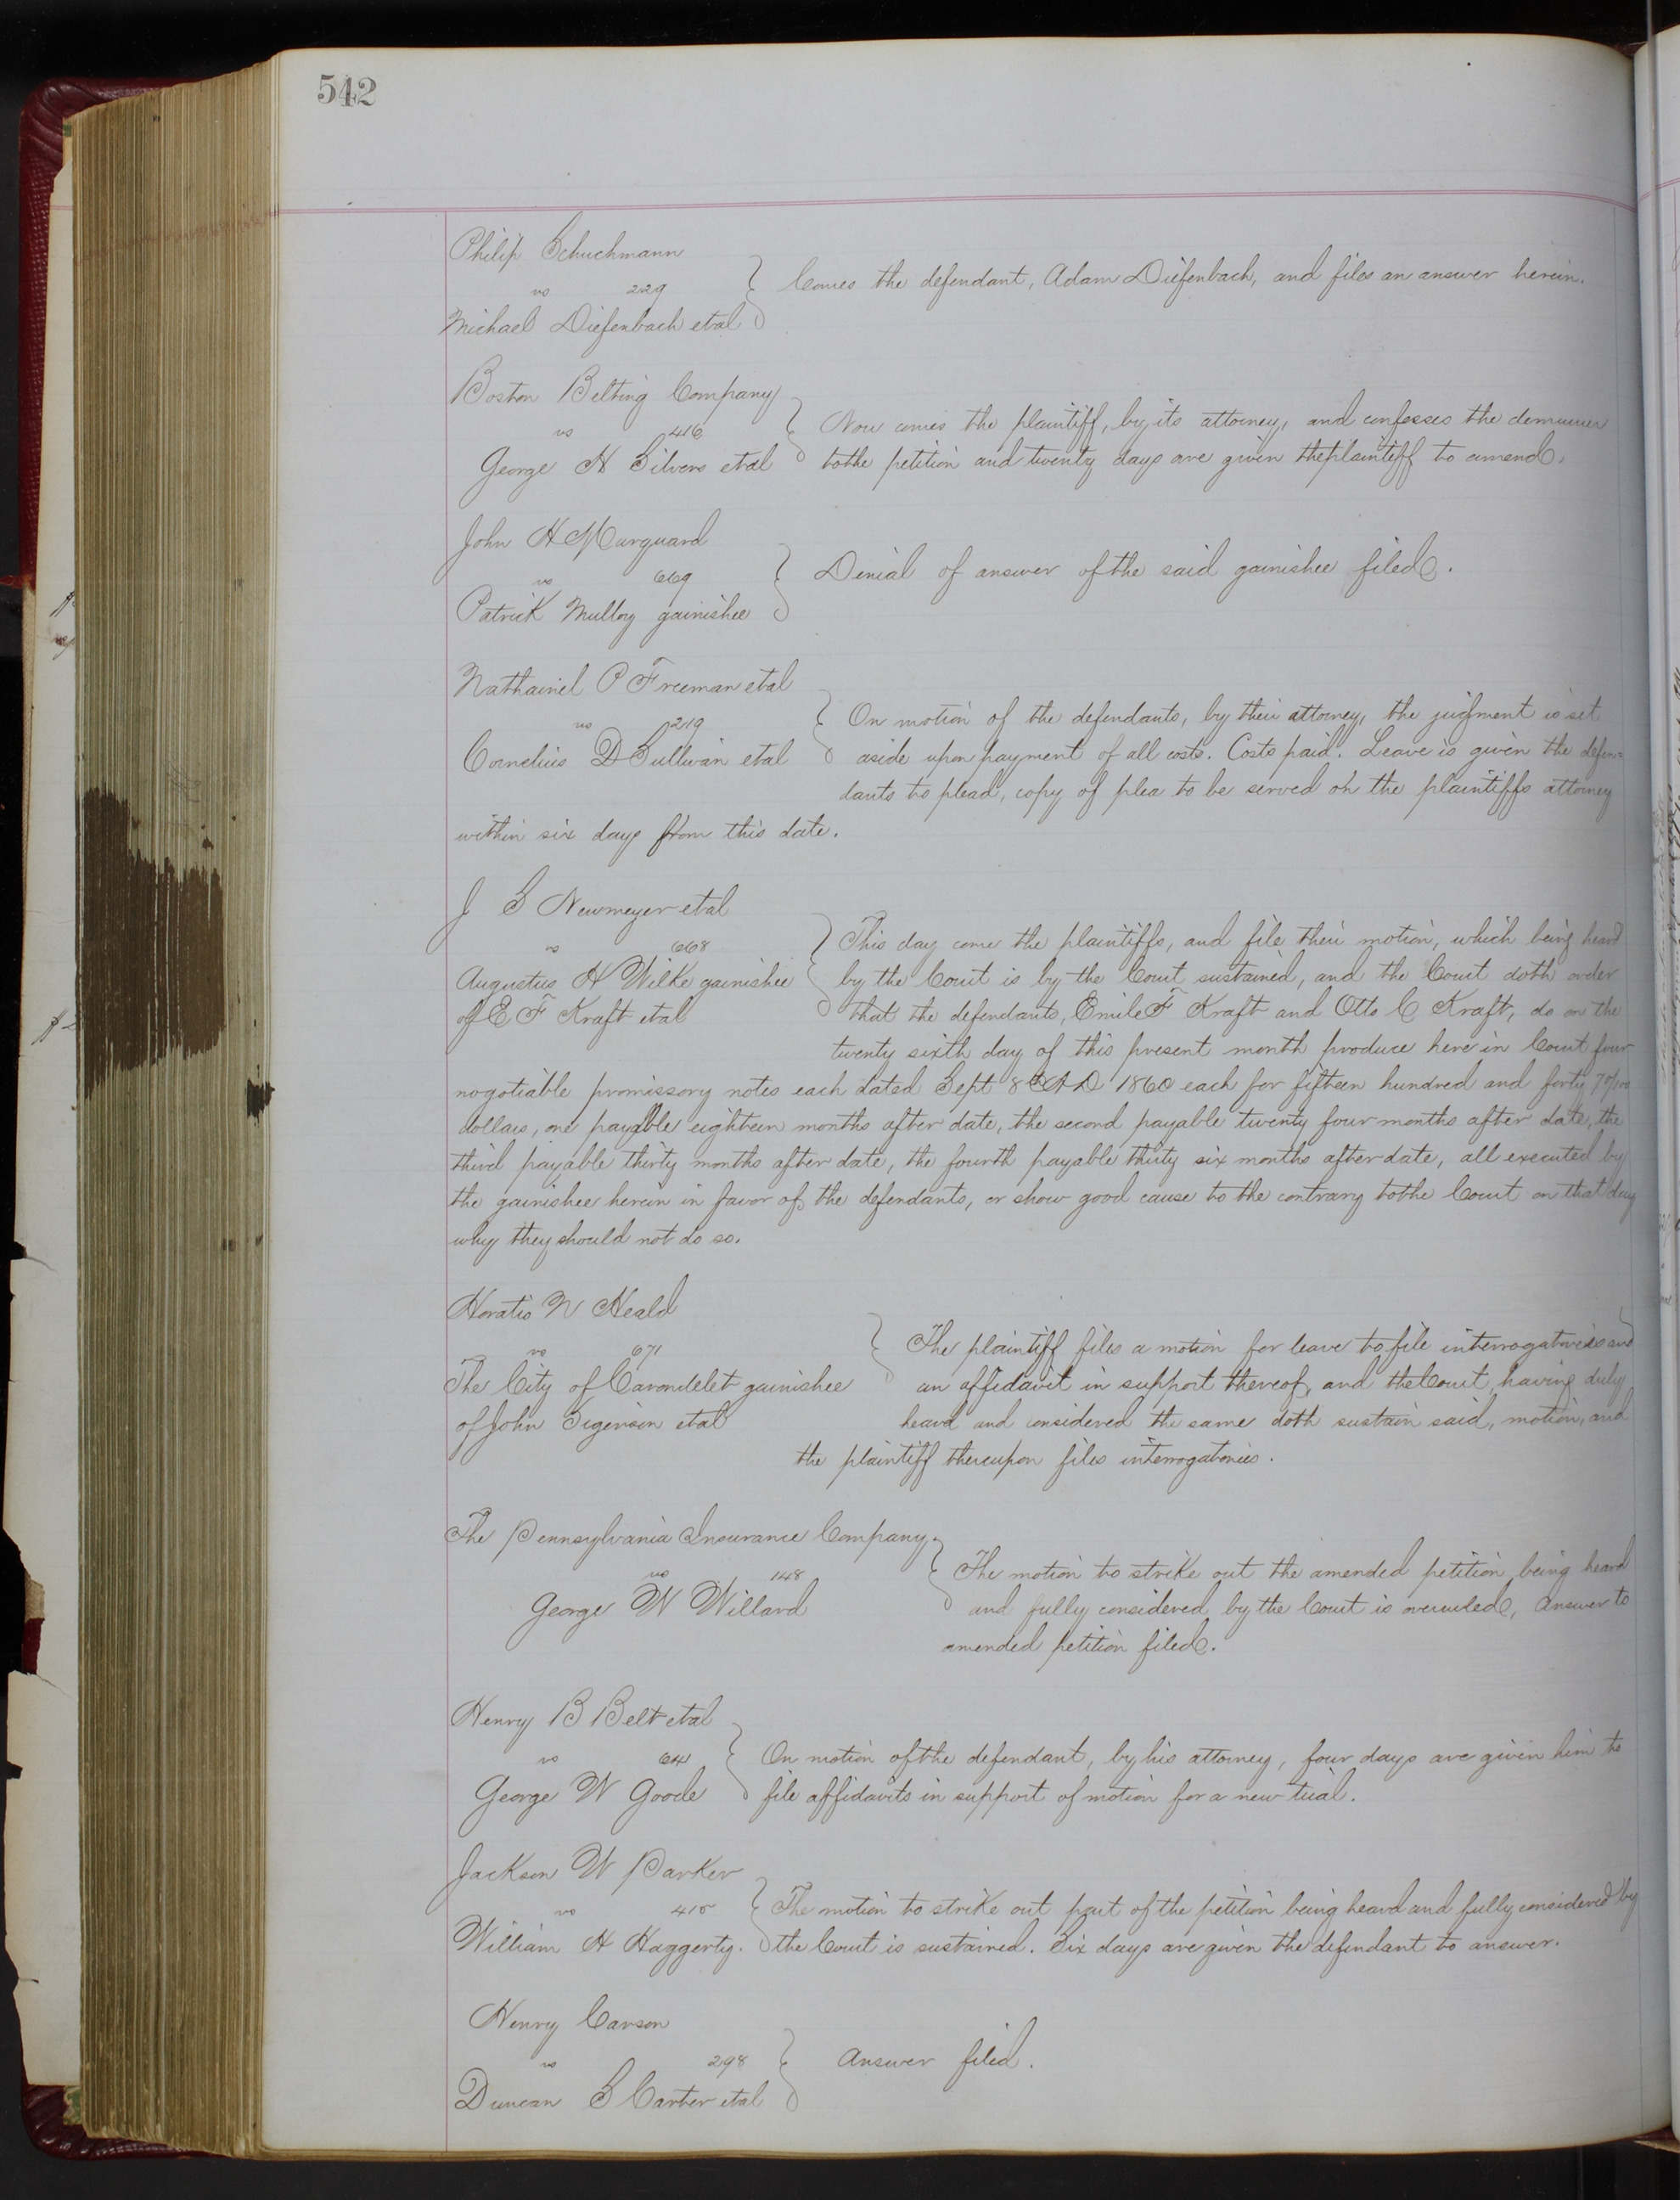 542
Philip Schuchmann
vs 229
Michael Diefenbach etal
Comes the defendant, Adam Diefenbach, and files an answer herein.
Boston Belting Company
vs 416
George H Silvers etal
Now comes the plaintiff, by its attorney, and confesses the demurrer
to the petition and twenty days are given the plaintiff to amend.
John H Marquard
vs 669
Patrick Mulloy garnishee
Denial of answer of the said garnishee filed.
Nathaniel P Freeman etal
vs 219
Cornelius D Sullivan etal
On motion of the defendants, by their attorney, the judgment is set
aside upon payment of all costs. Costs paid. Leave is given the defen-
dants to plead, copy of plea to be served on the plaintiffs attorney
within six days from this date.
J S Newmeyer etal
vs 668
Augustus H Wilke garnishee
of E F Kraft etal
This day come the plaintiffs, and file their motion, which being heard
by the Court is by the Court sustained, and the Court doth order
that the defendants, Emile F Kraft and Otto C Kraft, do on the
twenty sixth day of this present month produce here in Court four
nogotiable promissory notes each dated Sept 8th AD 1860 each for fifteen hundred and forty
dollars, one payable eighteen months after date, the second payable twenty four months after date, the
third payable thirty months after date, the fourth payable thirty six months after date, all executed by
the garnishee herein in favor of the defendants, or show good cause to the contrary to the Court on that day
why they should not do so.
Horatio N Heald
vs 671
The City of Carondelet garnishee
of John Sigerson etal
The plaintiff files a motion for leave to file interrogatories and
an affidavit in support thereof, and the Court, having duly
heard and considered the same doth sustain said, motion, and
the plaintiff thereupon files interrogatories.
The Pennsylvania Insurance Company
vs 148
George W Willard
The motion to strike out the amended petition being heard
and fully considered by the Court is overruled, Answer to
amended petition filed.
Henry B Belt etal
vs 64
George W Goode
On motion of the defendant, by his attorney, four days are given him to
file affidavits in support of motion for a new trial.
Jackson W Parker
vs 415
William H Haggerty.
The motion to strike out part of the petition being heard and fully considered by
the Court is sustained. Six days are given the defendant to answer.
Henry Carson
vs 298
Duncan S Carter etal
Answer filed.